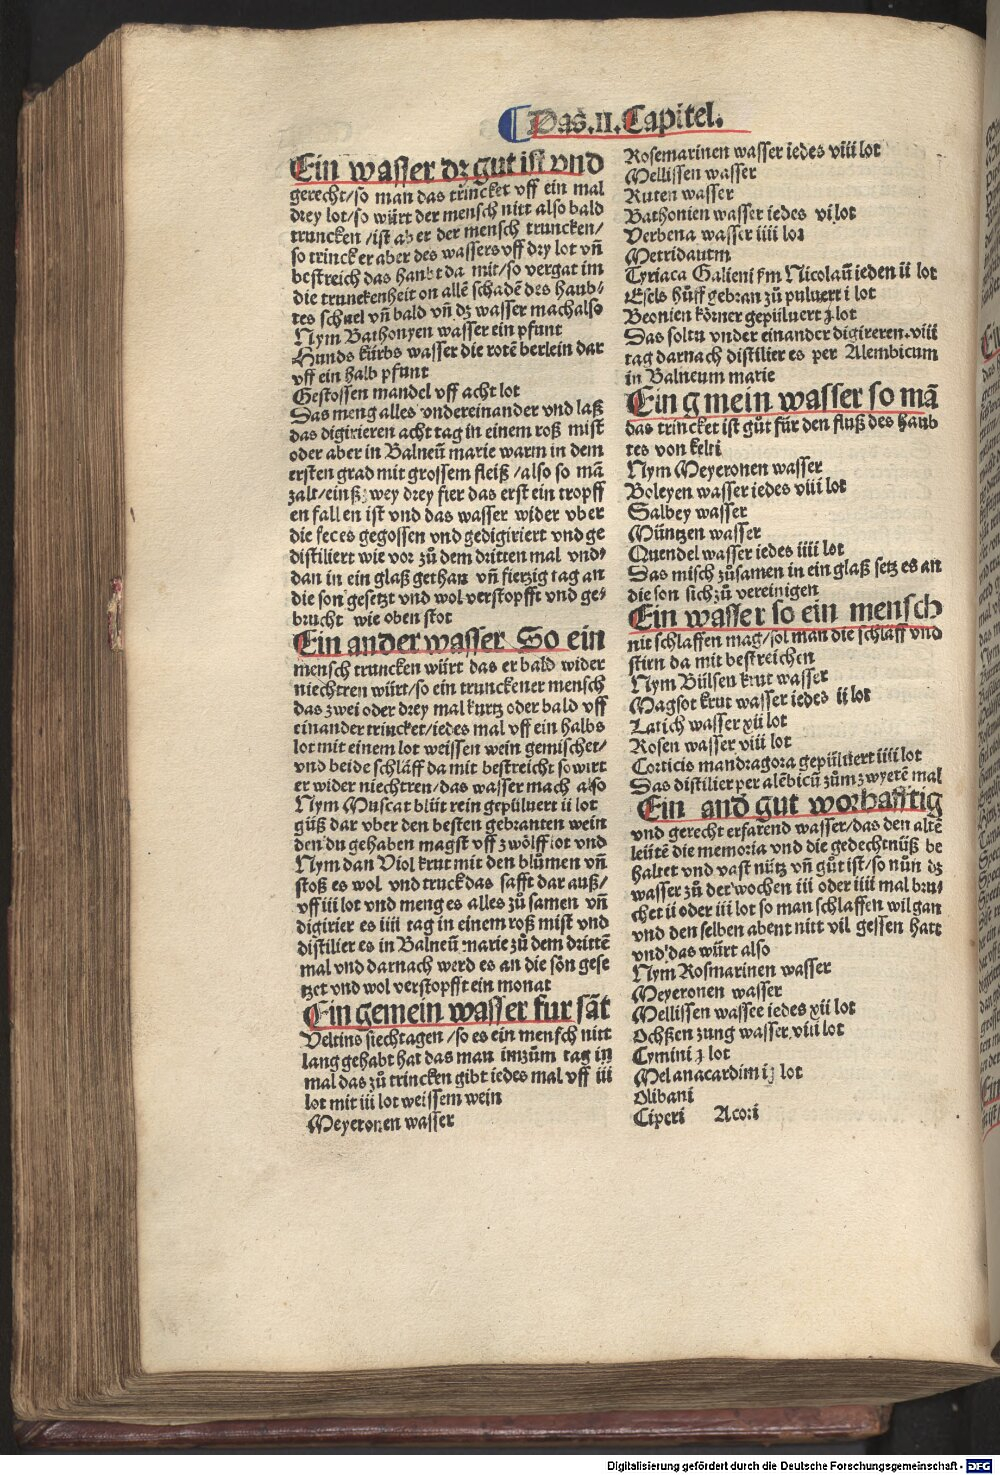 Das .II. Capitel.
Ein wasser dz gut ist vnd
gerecht/so man das trincket vff ein mal
drey lot/so würt der mensch nitt also bald
truncken/ist aber der mensch truncken/
so trincker aber des wassers vff dry lot vñ
bestreich das haubt da mit/so vergat im
die trunckenheit on allē schadē des haub⸗
tes schnel vñ bald vñ dz wasser mach also
Nym Bathonyen wasser ein pfunt
Hunds kürbs wasser die rotē berlein dar
vff ein halb pfunt
Gestossen mandel vff acht lot
Das meng alles vndereinander vnd laß
das digirieren acht tag in einem roß mist
oder aber in Balneū marie warm in dem
ersten grad mit grossem fleiß/also so mā
zalt/einß zwey drey fier das erst ein tropff
en fallen ist vnd das wasser wider vber
die feces gegossen vnd gedigiriert vnd ge
distiliert wie vor zů dem dritten mal vnd⸗
dan in ein glaß gethan vñ fierzig tag an
die son gesetzt vnd wol verstopfft vnd ge⸗
brucht wie oben stot
Ein ander wasser So ein
mensch truncken würt das er bald wider
niechtren würt/so ein trunckener mensch
das zwei oder drey mal kurtz oder bald vff
einander trincket/iedes mal vff ein halbs
lot mit einem lot weissen wein gemischet/
vnd beide schläff da mit bestreicht so wirt
er wider niechtren/das wasser mach also
Nym Muscat blüt rein gepülvert ii lot
güß dar vber den besten gebranten wein
den du gehaben magst vff zwölff lot vnd
Nym dan Viol krut mit den blůmen vñ
stoß es wol vnd truck das safft dar auß/
vff iii lot vnd meng es alles zů samen vñ
digirier es iiii tag in einem roß mist vnd
distilier es in Balneū marie zů dem drittē
mal vnd darnach werd es an die sōn gese
tzet vnd wol verstopfft ein monat
Ein gemein wasser fur sāt
Veltins siechtagen/so es ein mensch nitt
lang gehabt hat das man im zům tag in
mal das zů trincken gibt iedes mal vff iii
lot mit iii lot weissem wein
Meyeronen wasser
Rosemarinen wasser iedes viii lot
Mellissen wasser
Ruten wasser
Bathonien wasser iedes vi lot
Verbena wasser iiii lot
Metridautm
Tyriaca Galieni fm Nicolaū ieden ii lot
Esels hüff gebran zů puluert i lot
Beonien körner gepülvert ʒ lot
Das soltu vnder einander digireren viii
tag darnach distilier es per Alembicum
in Balneum marie
Ein gmein wasser so mā
das trincket ist gůt für den fluß des haub
tes von kelti
Nym Meyeronen wasser
Boleyen wasser iedes viii lot
Salbey wasser
Müntzen wasser
Quendel wasser iedes iiii lot
Das misch zůsamen in ein glaß setz es an
die son sich zů vereinigen
Ein wasser so ein mensch
nit schlaffen mag/sol man die schläff vnd
stirn da mit bestreichen
Nym Bülsen krut wasser
Magsot krut wasser iedes ii lot
Latich wasser xii lot
Rosen wasser viii lot
Corticis mandragora gepülvert iiii lot
Das distilier per alēbicū zům zwyetē mal
Ein and gut worhafftig
vnd gerecht erfarend wasser/das den altē
leütē die memoria vnd die gedechtnüß be
haltet vnd vast nütz vñ gůt ist/so nün dz
wasser zů der wochen iii oder iiii mal bru⸗
chet ii oder iii lot so man schlaffen wil gan
vnd den selben abent nitt vil gessen hatt
vnd das würt also
Nym Rosmarinen wasser
Meyeronen wasser
Mellissen wassee iedes xii lot
Ochßen zung wasser viii lot
Cymini ʒ lot
Mel anacardim iʒ lot
Olibani
Ciperi Acori
Digitalisierung gefördert durch die Deutsche Forschungsgemeinschaft - DFG